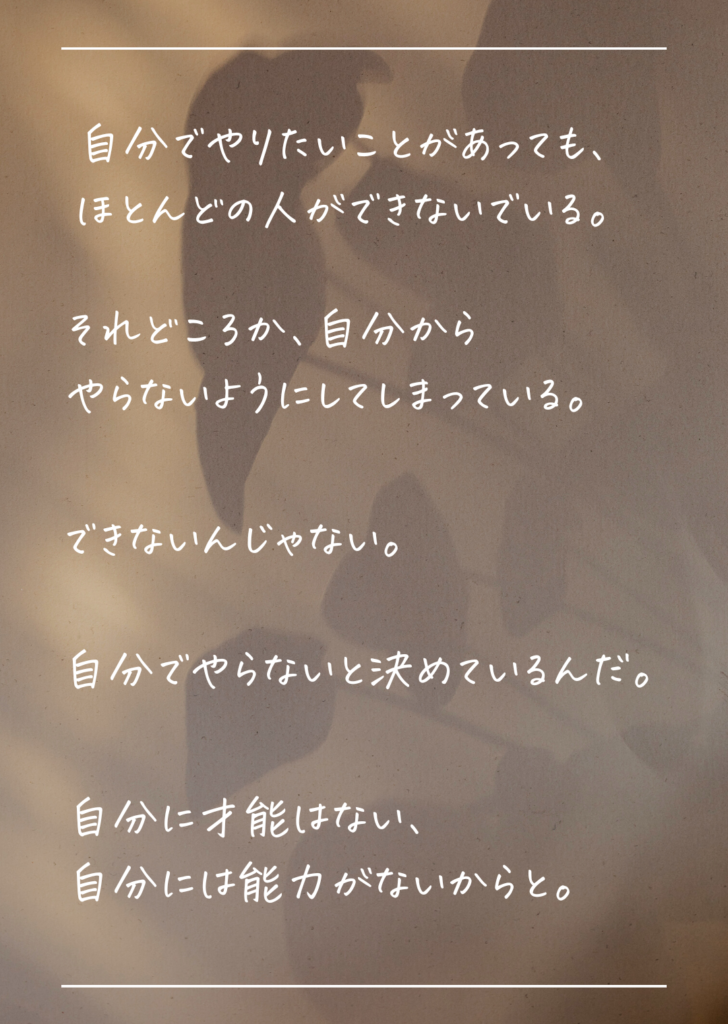 自分でやりたいことがあっても、
ほとんどの人ができないでいる。
それどころか、自分から
やらないようにしてしまっている。
できないんじゃない。
自分でやらないと決めているんだ。
自分に才能はない、
自分には能力がないからと。